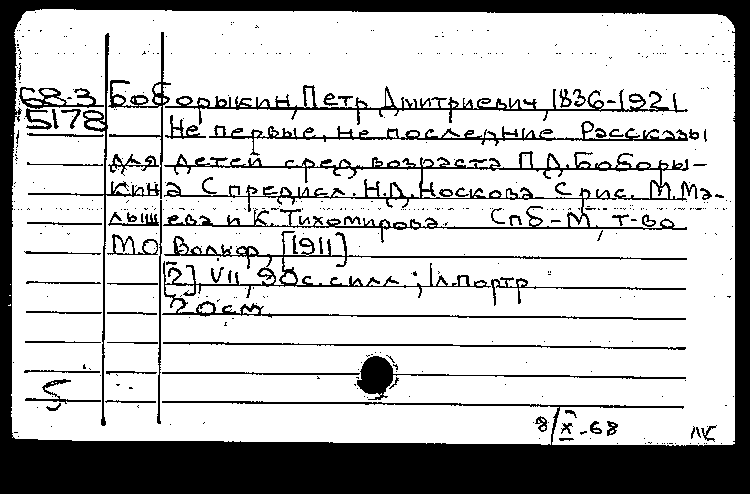 68-3 Боборыкин, Петр Дмитриевич, 1836-1921
5178 Не первые, не последние Рассказы
для детей сред. возраста П.Д. Боборы-
кина С предисл. Н.Д. Носкова С рис. М. Ма-
лышева и К. Тихомирова. Спб-М, т-во
М.О Вольф, [1911]
[2], VII, 90 с. с илл.; 1 л. портр
20 см.
8/X-68